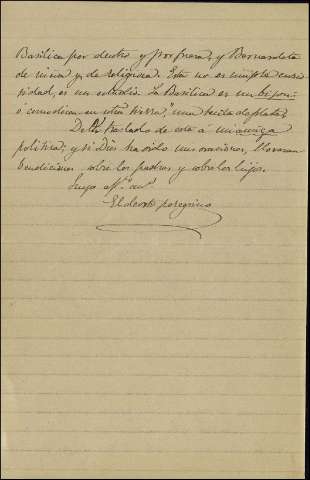 Basílica por dentro y por fuera, y Bernardeta
de niña y de religiosa. Esta no es simple curio-
sidad, es un estudio. La Basílica es un bijou:
ó como dicen en otra tierra, "una tacita de plata".
traslado de esta á mi amiga
política; y si Dios ha oido mis oraciones, lloveran
bendiciones sobre los padres y sobre los hijos.
Suyo aff.mo
El devoto peregrino